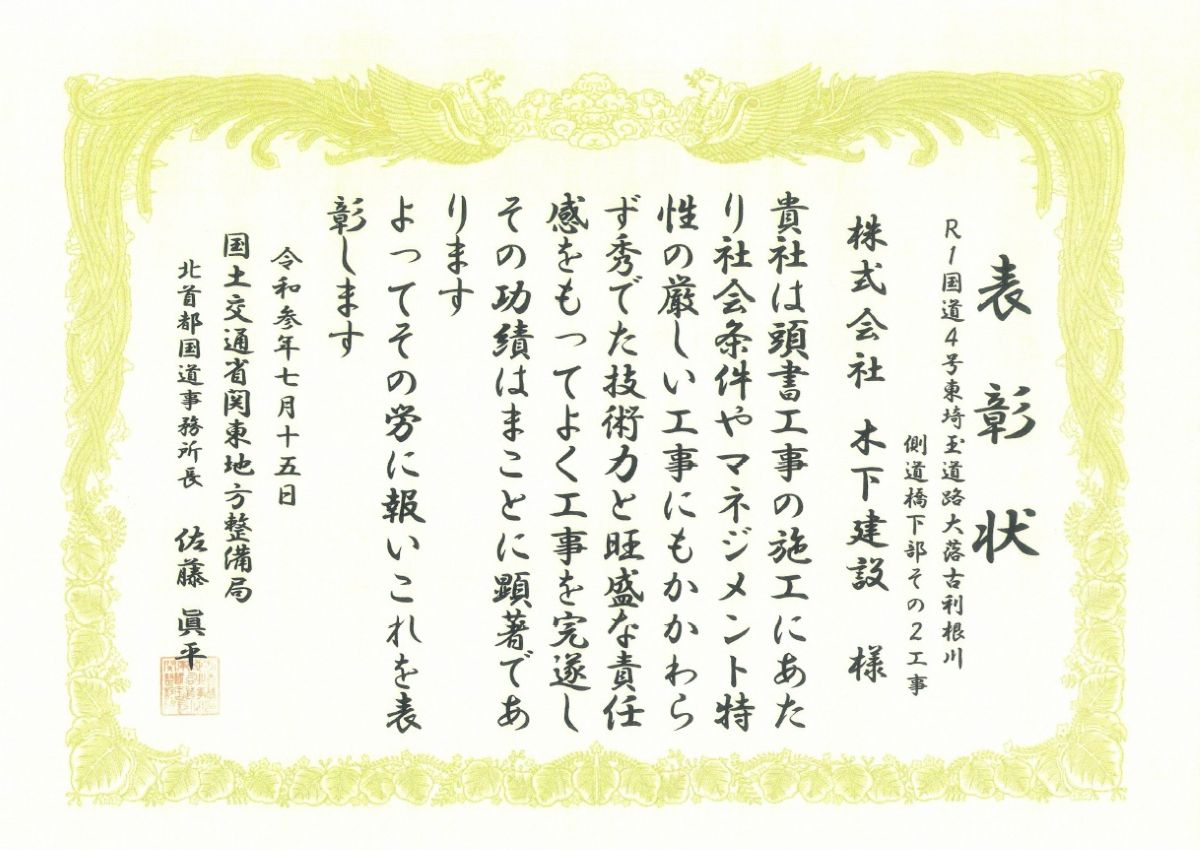 表彰状
R1国道4号東埼玉道路大落古利根川
側道橋下部その2工事
株式会社 木下建設 様
貴社は頭書工事の施工にあた
り社会条件やマネジメント特
性の厳しい工事にもかかわら
ず秀でた技術力と旺盛な責任
感をもってよく工事を完遂し
その功績はまことに顕著であ
ります
よってその労に報いこれを表
彰します
令和参年七月十五日
国土交通省関東地方整備局
北首都国道事務所長 佐藤 眞平